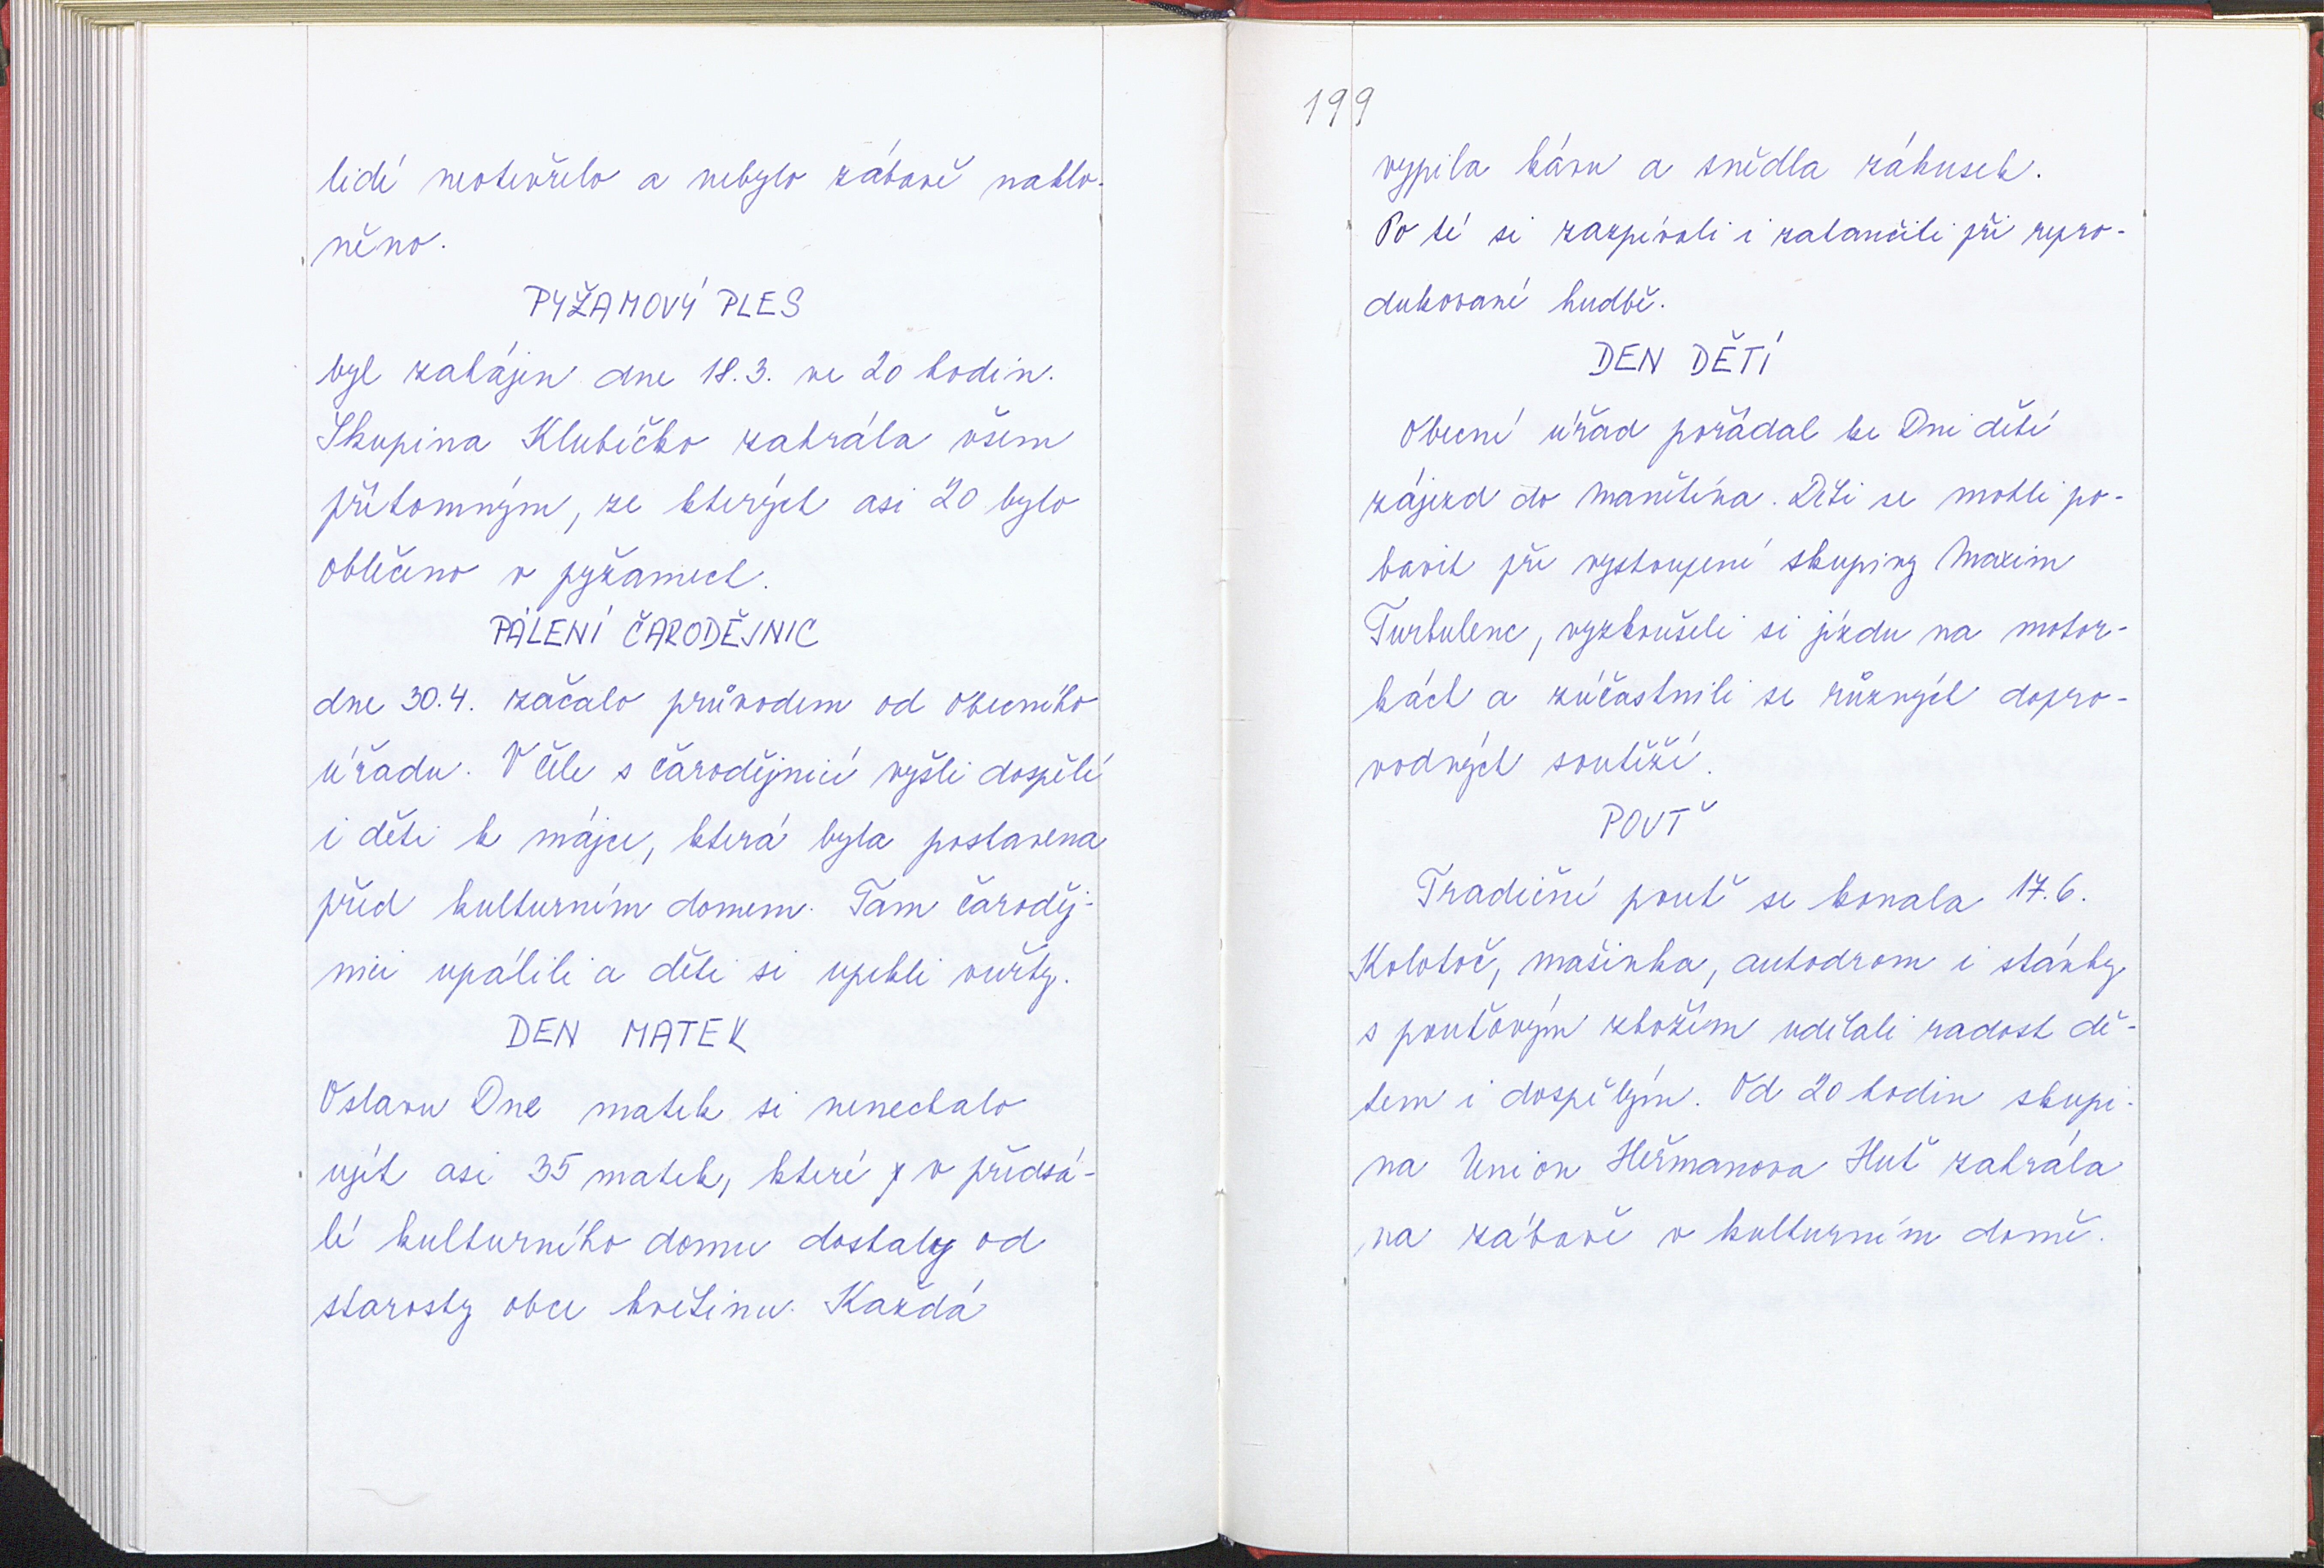 lidí neotevřelo a nebylo zábavě naklo-
něno.
PYŽAMOVÝ PLES
byl zahájen dne 18.3. ve 20 hodin.
Skupina Klubíčko zahrála všem
přítomným, ze kterých asi 20 bylo
oblečeno v pyžamech.
PÁLENÍ ČARODĚJNIC
dne 30.4. začalo průvodem od obecního
úřadu. V čele s čarodějnicí vyšli dospělí
i děti k májce, která byla postavena
před kulturním domem. Tam čaroděj-
nici upálili a děti si upekli vuřty.
DEN MATEK
Oslavu Dne matek si nenechalo
ujít asi 35 matek, které v předsá-
lí kulturního domu dostaly od
starosty obce květinu. Každá
199
vypila kávu a snědla zákusek.
Po té si zazpívali i zatančili při repro-
dukované hudbě.
DEN DĚTÍ
Obecní úřad pořádal ke Dni dětí
zájezd do Manětína. Děti se mohli po-
bavit při vystoupení skupiny Maxim
Turbulenc, vyzkoušeli si jízdu na motor-
kách a zúčastnili se různých dopro-
vodných soutěží.
POUŤ
Tradiční pouť se konala 17.6.
Kolotoč, mašinka, autodrom i stánky
s pouťovým zbožím udělali radost dě-
tem i dospělým. Od 20 hodin skupi-
na Union Heřmanova Huť zahrála
na zábavě v kulturním domě.